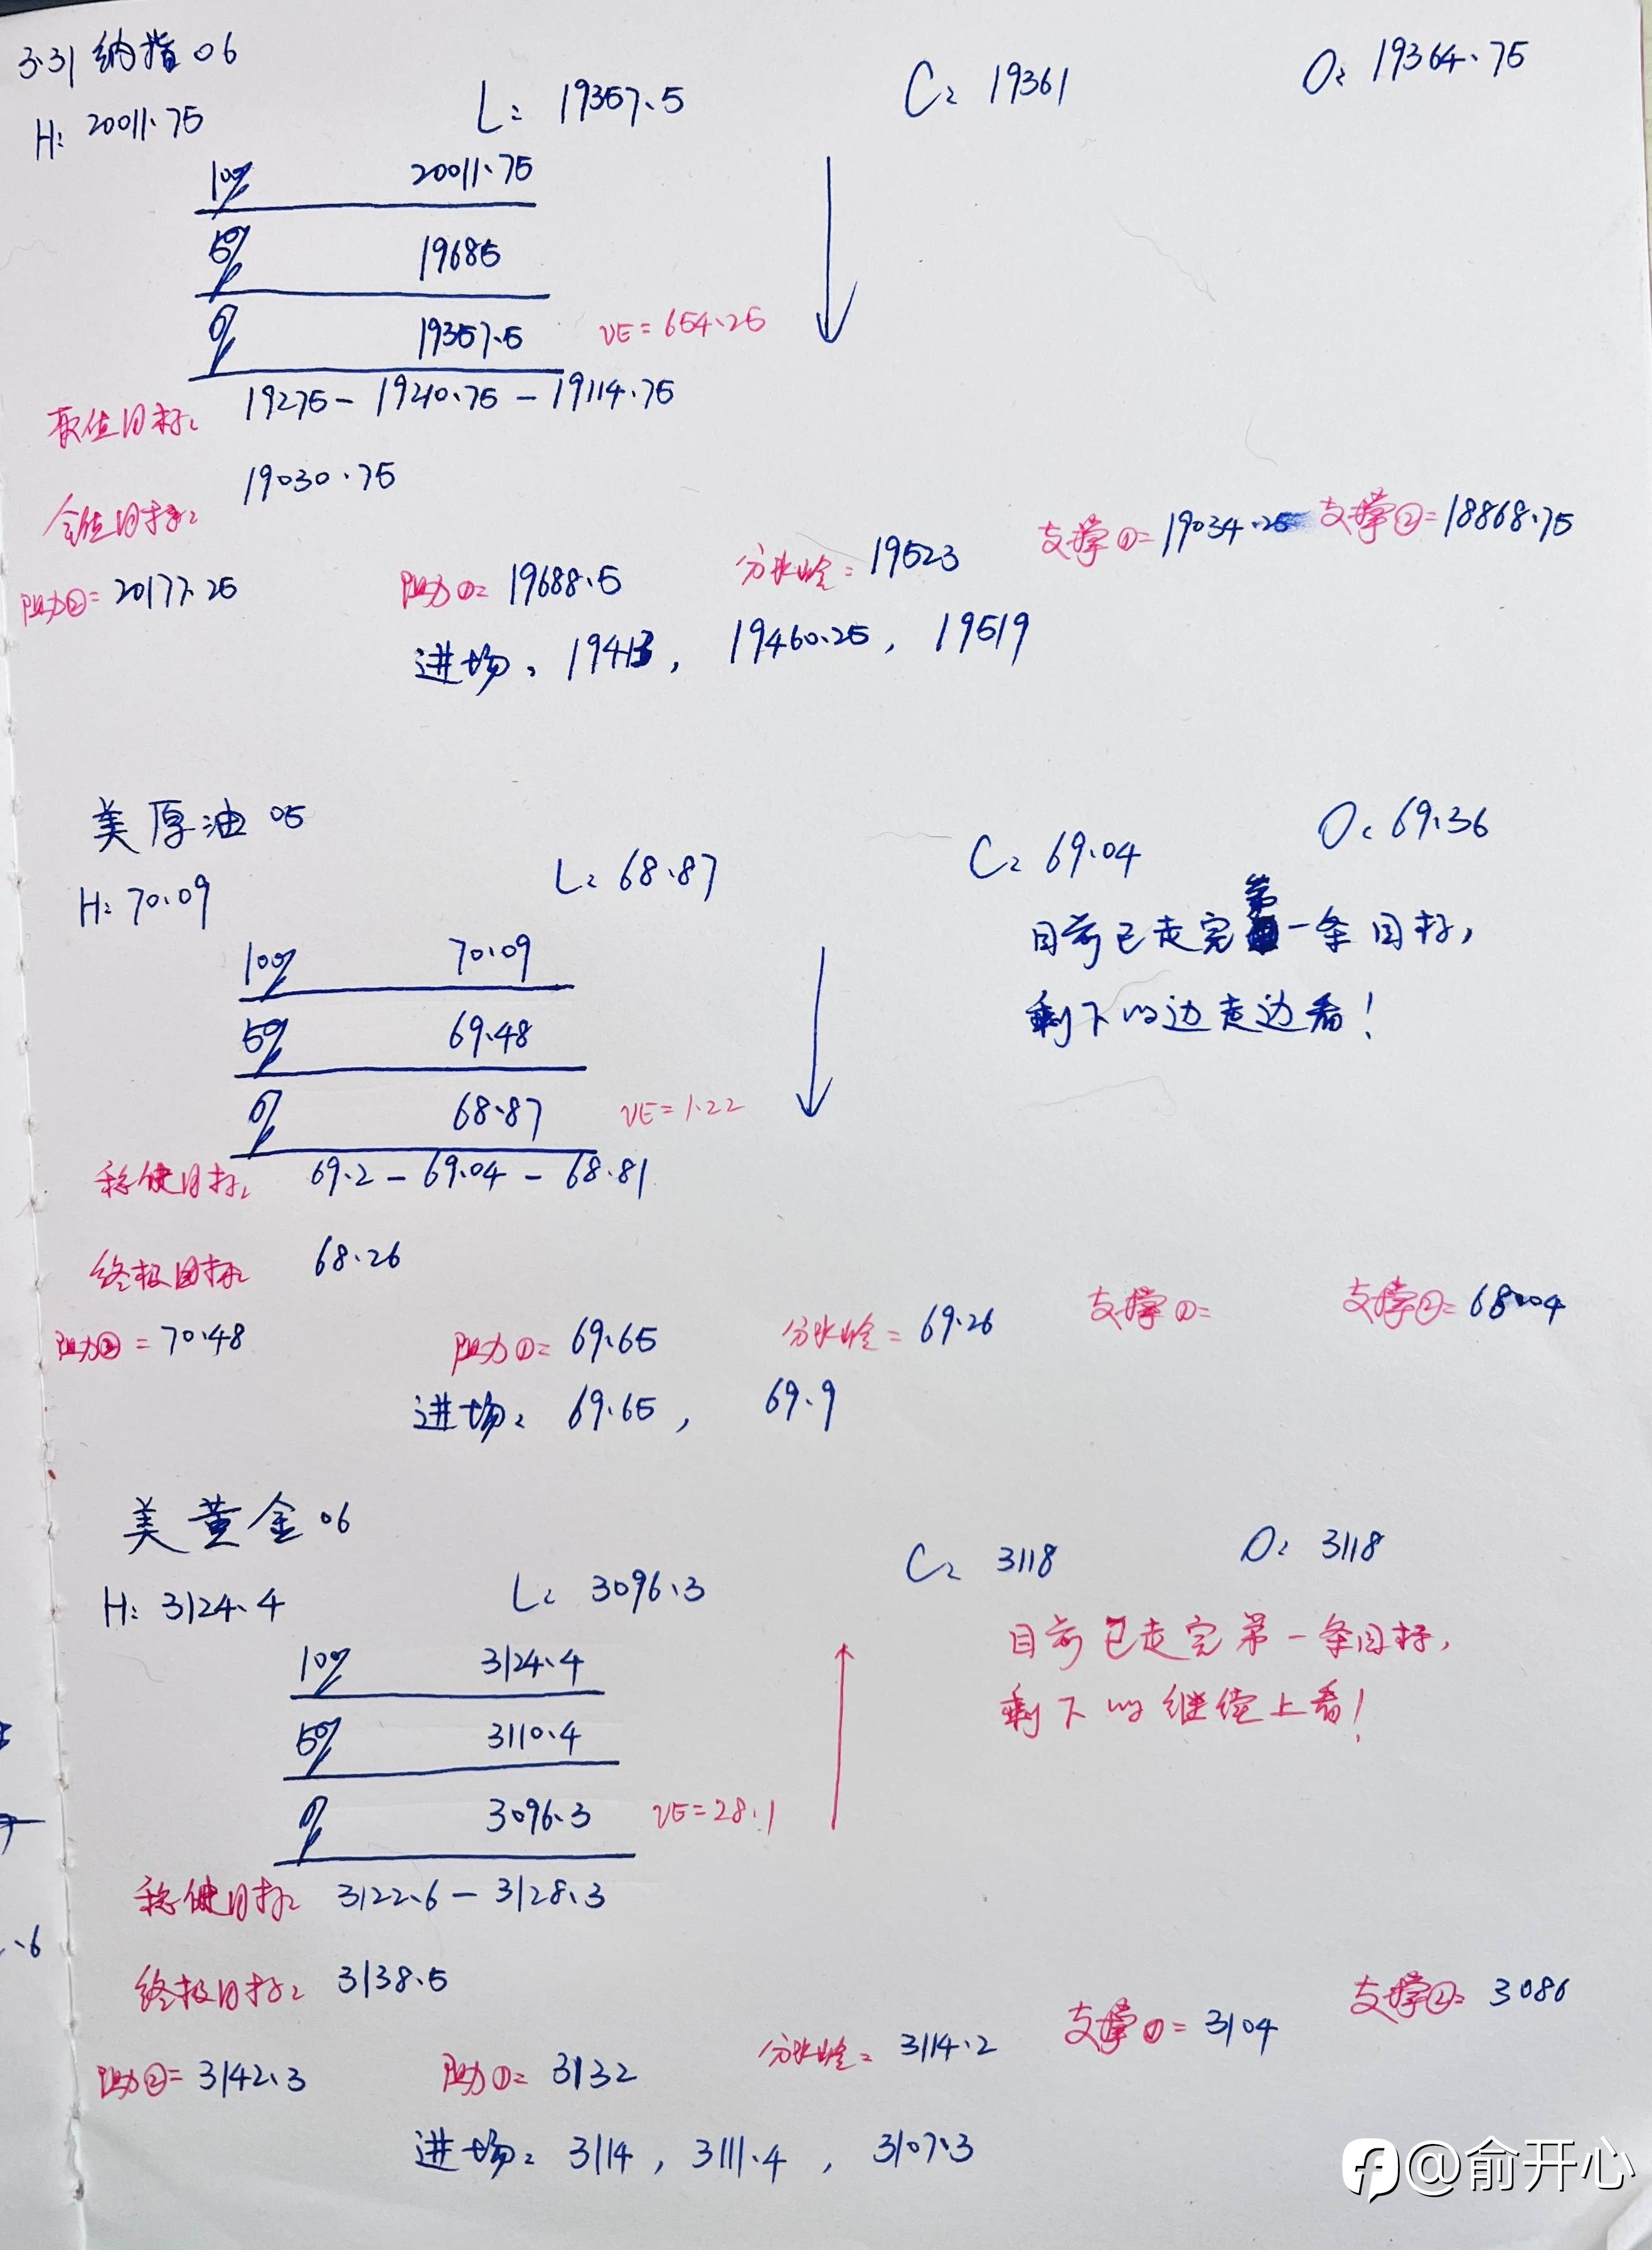 3.31 纳指06
H: 20011.75 L: 19357.5 C: 19361 O: 19364.75
100% 20011.75
50% 19685
0% 19357.5 VE=654.25
19275 - 19210.75 - 19114.75
目标:
目标: 19030.75
阻力②=20177.25 阻力①=19688.5 分水岭=19523 支撑①=19034.25 支撑②=18868.75
进场: 19413, 19460.25, 19519
美原油05
H: 70.09 L: 68.87 C: 69.04 O: 69.36
目前已走完第一条目标,
剩下的边走边看!
100% 70.09
50% 69.48
0% 68.87 VE=1.22
稳健目标: 69.2 - 69.04 - 68.81
终极目标: 68.26
阻力②=70.48 阻力①=69.65 分水岭=69.26 支撑①= 支撑②=68.04
进场: 69.65, 69.9
美黄金06
H: 3124.4 L: 3096.3 C: 3118 O: 3118
目前已走完第一条目标,
剩下的继续上看!
100% 3124.4
50% 3110.4
0% 3096.3 VE=28.1
稳健目标: 3122.6 - 3128.3
终极目标: 3138.5
阻力②=3142.3 阻力①=3132 分水岭=3114.2 支撑①=3104 支撑②=3086
进场: 3114, 3111.4, 3107.3
.6
@俞开心